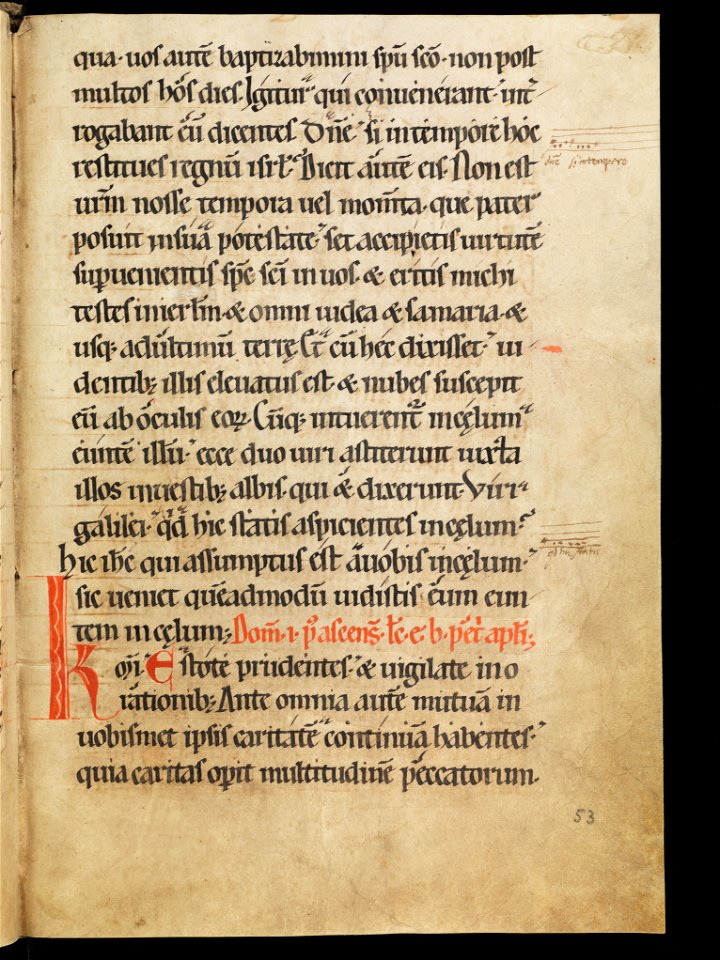 qua· uos autē baptizabimini spū scō· non post
multos hos dies. Igitur qui conuenerant· int̄
rogabant eū dicentes. Dn̄e si in tempore hoc
restitues regnū isrl̄. Dixit autē eis. Non est
ur̄m nosse tempora uel mom̄ta· que pater
posuit in suā potestate· set accipietis uirtutē
sup̱uenientis sp̄c sc̄i in uos· & eritis michi
testes in ierl̄m· & omni iudea & samaria· &
usq; ad ultimū terrę. Et cū hec dixisset· ui
dentib; illis eleuatus est· & nubes suscepit
eū ab oculis eoꝝ. Cūq; intuerent᷑ in cęlum
euntē illū· ecce duo uiri astiterunt iuxta
illos in uestib; albis· qui & dixerunt· Uiri
galilei· qd̄ hic statis aspicientes in cęlum?
hic ih̄c qui assumptus est a uobis in cęlum·
sic ueniet quēadmodū uidistis eum eun
tem in cęlum; Dom̄· i· p̾ ascens̄· lc̄· e· b· pet̾ apl̄i;
Kmi· Estote prudentes· & uigilate in o
rationib; Ante omnia autē mutuā in
uobismet ipsis caritatē continuā habentes·
quia caritas op̱it multitudinē peccatorum·
dn̄e si in tempore
53